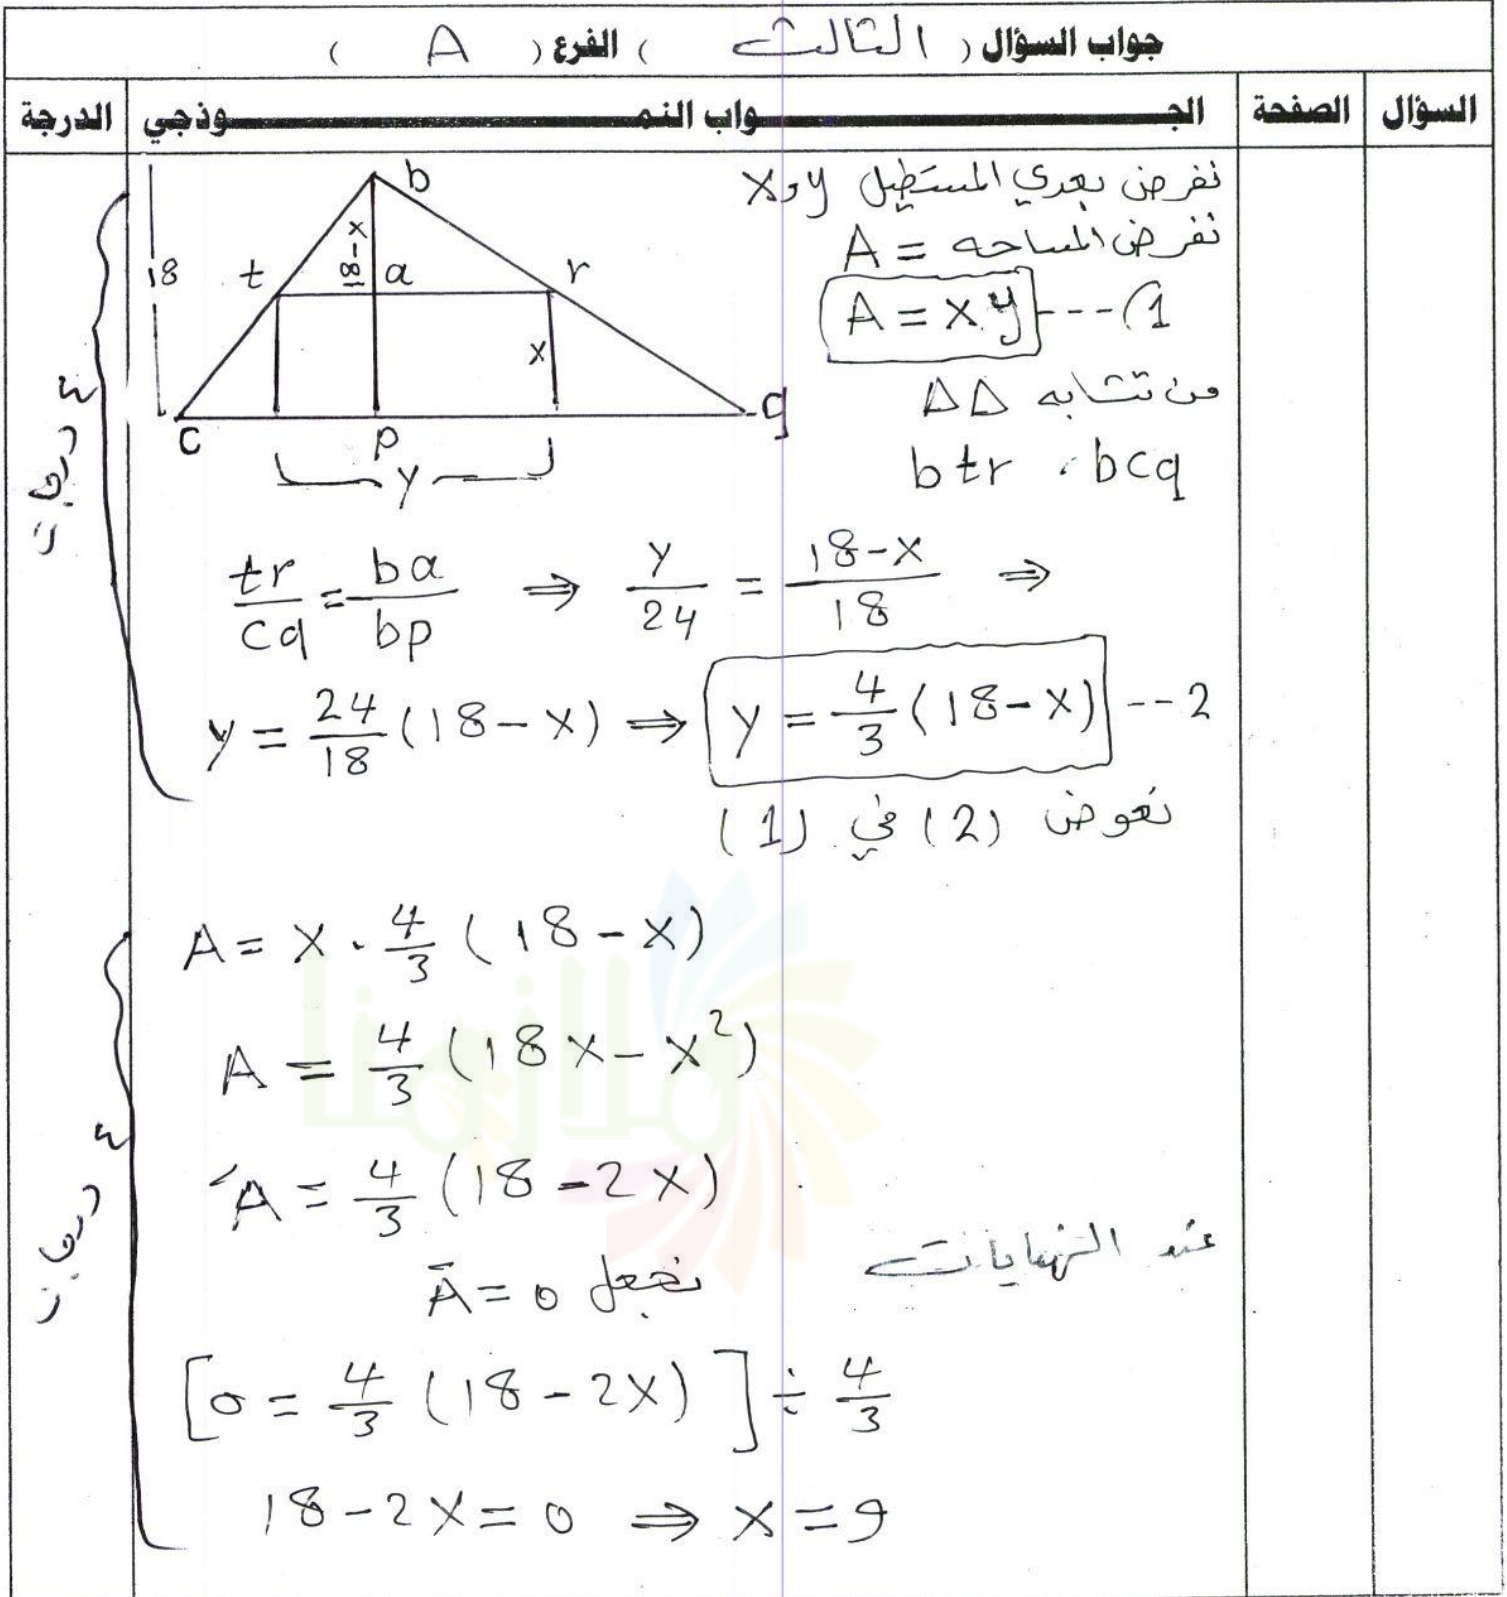 جواب السؤال ( الثالث ) الفرع ( A )
السؤال الصفحة الجــواب النمــوذجي الدرجة
نفرض بعدي المستطيل x و y
نفرض المساحه = A
A = x y ---(1
من تشابه ΔΔ
btr ، bcq
b
18
18-x
t
a
r
x
c
p
q
y
tr/cq = ba/bp ⇒ y/24 = (18-x)/18 ⇒
y = 24/18 (18-x) ⇒ y = 4/3 (18-x) --2
نعوض (2) في (1)
٤ درجات
A = x · 4/3 (18-x)
A = 4/3 (18x - x²)
A′ = 4/3 (18-2x)
عند النهايات نجعل Ā = 0
[0 = 4/3 (18-2x)] ÷ 4/3
18-2x = 0 ⇒ x = 9
٤ درجات
ملازمنا